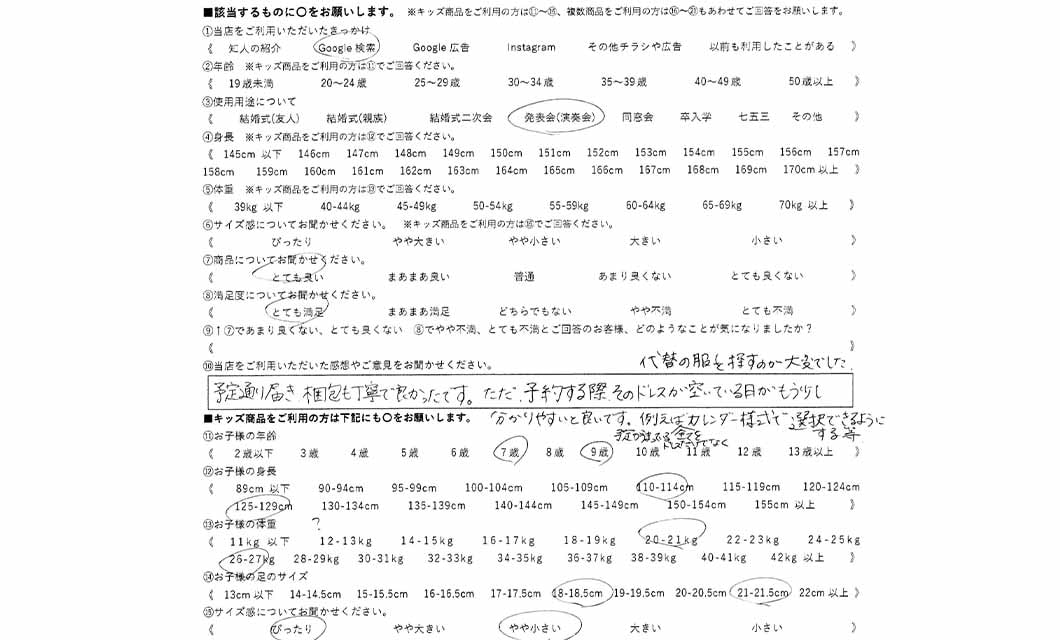 ■該当するものに〇をお願いします。 ※キッズ商品をご利用の方は⑪～⑮、複数商品をご利用の方は⑯～⑳もあわせてご回答をお願いします。
①当店をご利用いただいたきっかけ
《 知人の紹介 Google 検索 Google 広告 Instagram その他チラシや広告 以前も利用したことがある 》
②年齢 ※キッズ商品をご利用の方は⑪でご回答ください。
《 19歳未満 20～24歳 25～29歳 30～34歳 35～39歳 40～49歳 50歳以上 》
③使用用途について
《 結婚式(友人) 結婚式(親族) 結婚式二次会 発表会(演奏会) 同窓会 卒入学 七五三 その他 》
④身長 ※キッズ商品をご利用の方は⑫でご回答ください。
《 145cm 以下 146cm 147cm 148cm 149cm 150cm 151cm 152cm 153cm 154cm 155cm 156cm 157cm
158cm 159cm 160cm 161cm 162cm 163cm 164cm 165cm 166cm 167cm 168cm 169cm 170cm 以上 》
⑤体重 ※キッズ商品をご利用の方は⑬でご回答ください。
《 39kg 以下 40-44kg 45-49kg 50-54kg 55-59kg 60-64kg 65-69kg 70kg 以上 》
⑥サイズ感についてお聞かせください。 ※キッズ商品をご利用の方は⑮でご回答ください。
《 ぴったり やや大きい やや小さい 大きい 小さい 》
⑦商品についてお聞かせください。
《 とても良い まあまあ良い 普通 あまり良くない とても良くない 》
⑧満足度についてお聞かせください。
《 とても満足 まあまあ満足 どちらでもない やや不満 とても不満 》
⑨↑⑦であまり良くない、とても良くない ⑧でやや不満、とても不満とご回答のお客様、どのようなことが気になりましたか？
《 》
⑩当店をご利用いただいた感想やご意見をお聞かせください。
代替の服を探すのが大変でした。
予定通り届き、梱包も丁寧で良かったです。ただ、予約する際、そのドレスが空いている日がもう少し
■キッズ商品をご利用の方は下記にも〇をお願いします。
分かりやすいと良いです。例えばカレンダー様式で選択できるように
する等
⑪お子様の年齢
《 2歳以下 3歳 4歳 5歳 6歳 7歳 8歳 9歳 10歳 11歳 12歳 13歳以上 》
⑫お子様の身長
《 89cm 以下 90-94cm 95-99cm 100-104cm 105-109cm 110-114cm 115-119cm 120-124cm
125-129cm 130-134cm 135-139cm 140-144cm 145-149cm 150-154cm 155cm 以上 》
⑬お子様の体重 ?
《 11kg 以下 12-13kg 14-15kg 16-17kg 18-19kg 20-21kg 22-23kg 24-25kg
26-27kg 28-29kg 30-31kg 32-33kg 34-35kg 36-37kg 38-39kg 40-41kg 42kg 以上 》
⑭お子様の足のサイズ
《 13cm 以下 14-14.5cm 15-15.5cm 16-16.5cm 17-17.5cm 18-18.5cm 19-19.5cm 20-20.5cm 21-21.5cm 22cm 以上 》
⑮サイズ感についてお聞かせください。
《 ぴったり やや大きい やや小さい 大きい 小さい 》